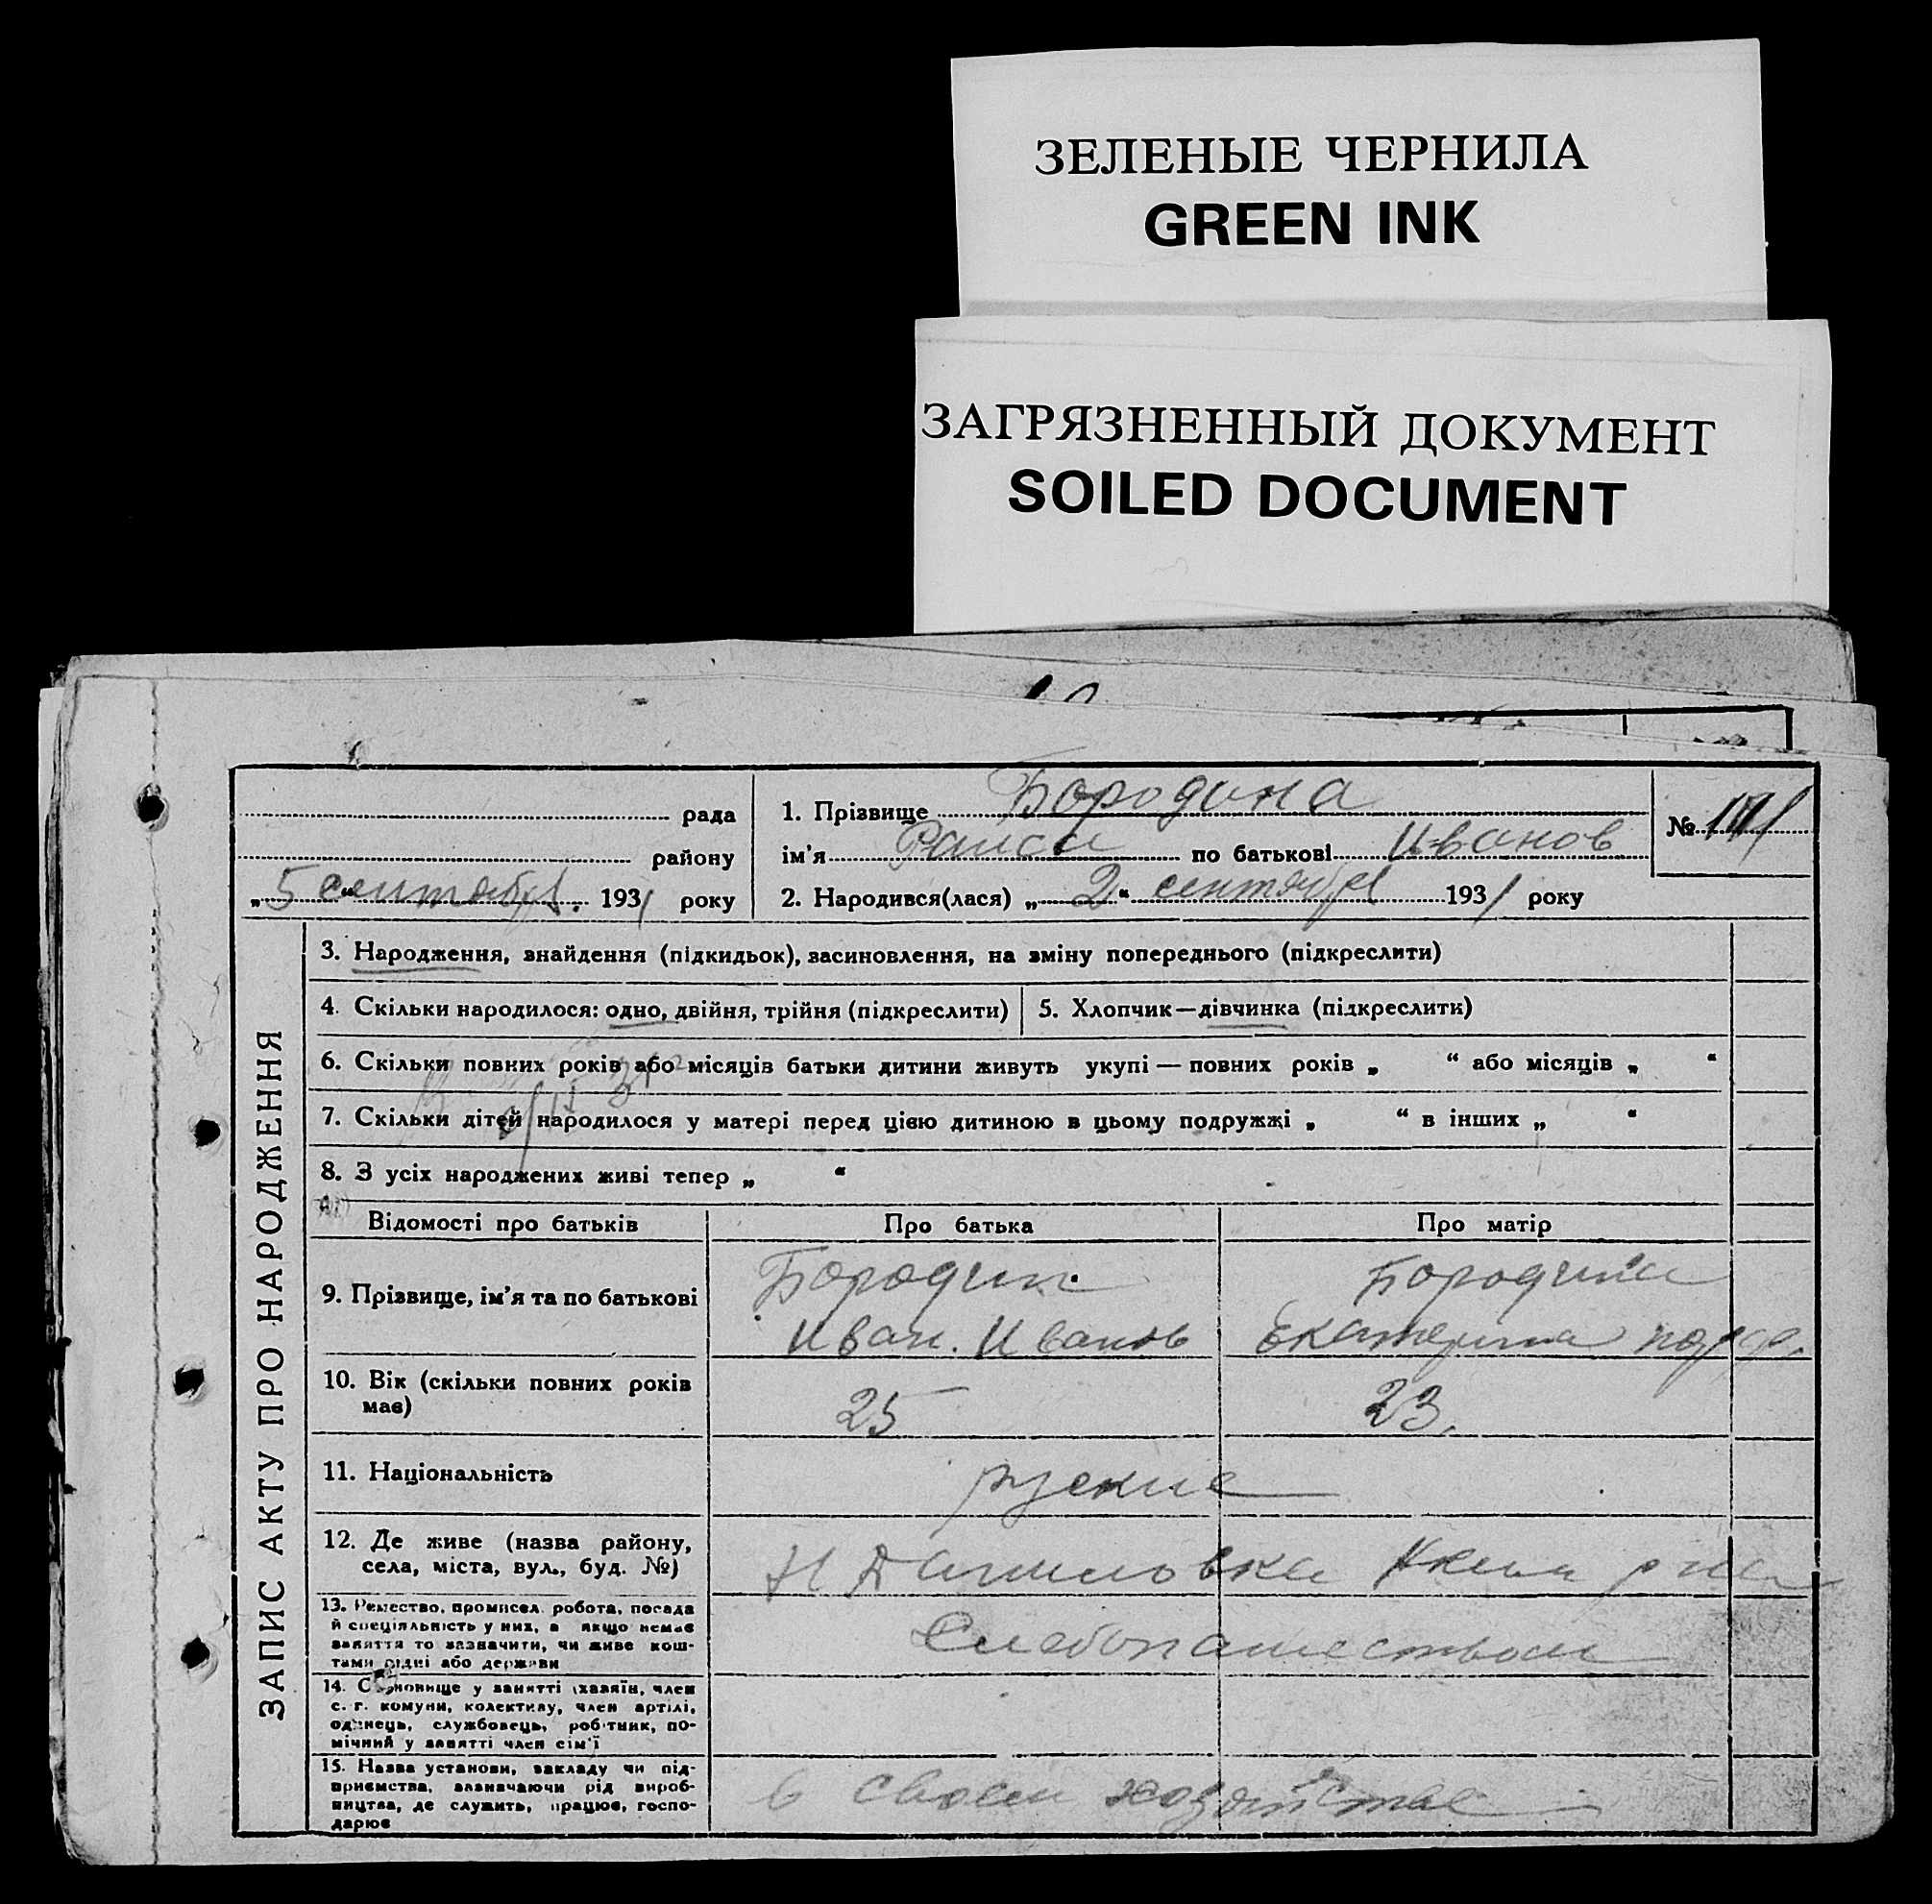 ЗЕЛЕНЫЕ ЧЕРНИЛА
GREEN INK
ЗАГРЯЗНЕННЫЙ ДОКУМЕНТ
SOILED DOCUMENT
рада
району
„5“ сентября. 1931 року
1. Прізвище Бородина
ім'я Раиса по батькові Иванов
2. Народився(лася) „2“ сентября 1931 року
№
ЗАПИС АКТУ ПРО НАРОДЖЕННЯ
3. Народження, знайдення (підкидьок), засиновлення, на зміну попереднього (підкреслити)
4. Скільки народилося: одно, двійня, трійня (підкреслити)
5. Хлопчик—дівчинка (підкреслити)
6. Скільки повних років або місяців батьки дитини живуть укупі — повних років „ “ або місяців „ “
7. Скільки дітей народилося у матері перед цією дитиною в цьому подружжі „ “ в інших „ “
8. З усіх народжених живі тепер „ “
Відомості про батьків
Про батька
Про матір
9. Прізвище, ім'я та по батькові
Бородин
Иван. Иванов
Бородина
Екатерина
10. Вік (скільки повних років
має)
25
23.
11. Національність
руские
12. Де живе (назва району,
села, міста, вул., буд. №)
Н Даниловка
13. Ремество, промисел, робота, посада
й спеціяльність у них, а якщо немає
заняття то зазначити, чи живе кош-
тами рідні або держави
Слебопашеством
14. Становище у занятті (хазяїн, член
с.-г. комуни, колективу, член артілі,
одинець, службовець, робітник, по-
мічний у занятті член сім'ї
15. Назва установи, закладу чи під-
приємства, зазначаючи рід вироб-
ництва, де служить, працює, госпо-
дарює
в своем хозяйстве